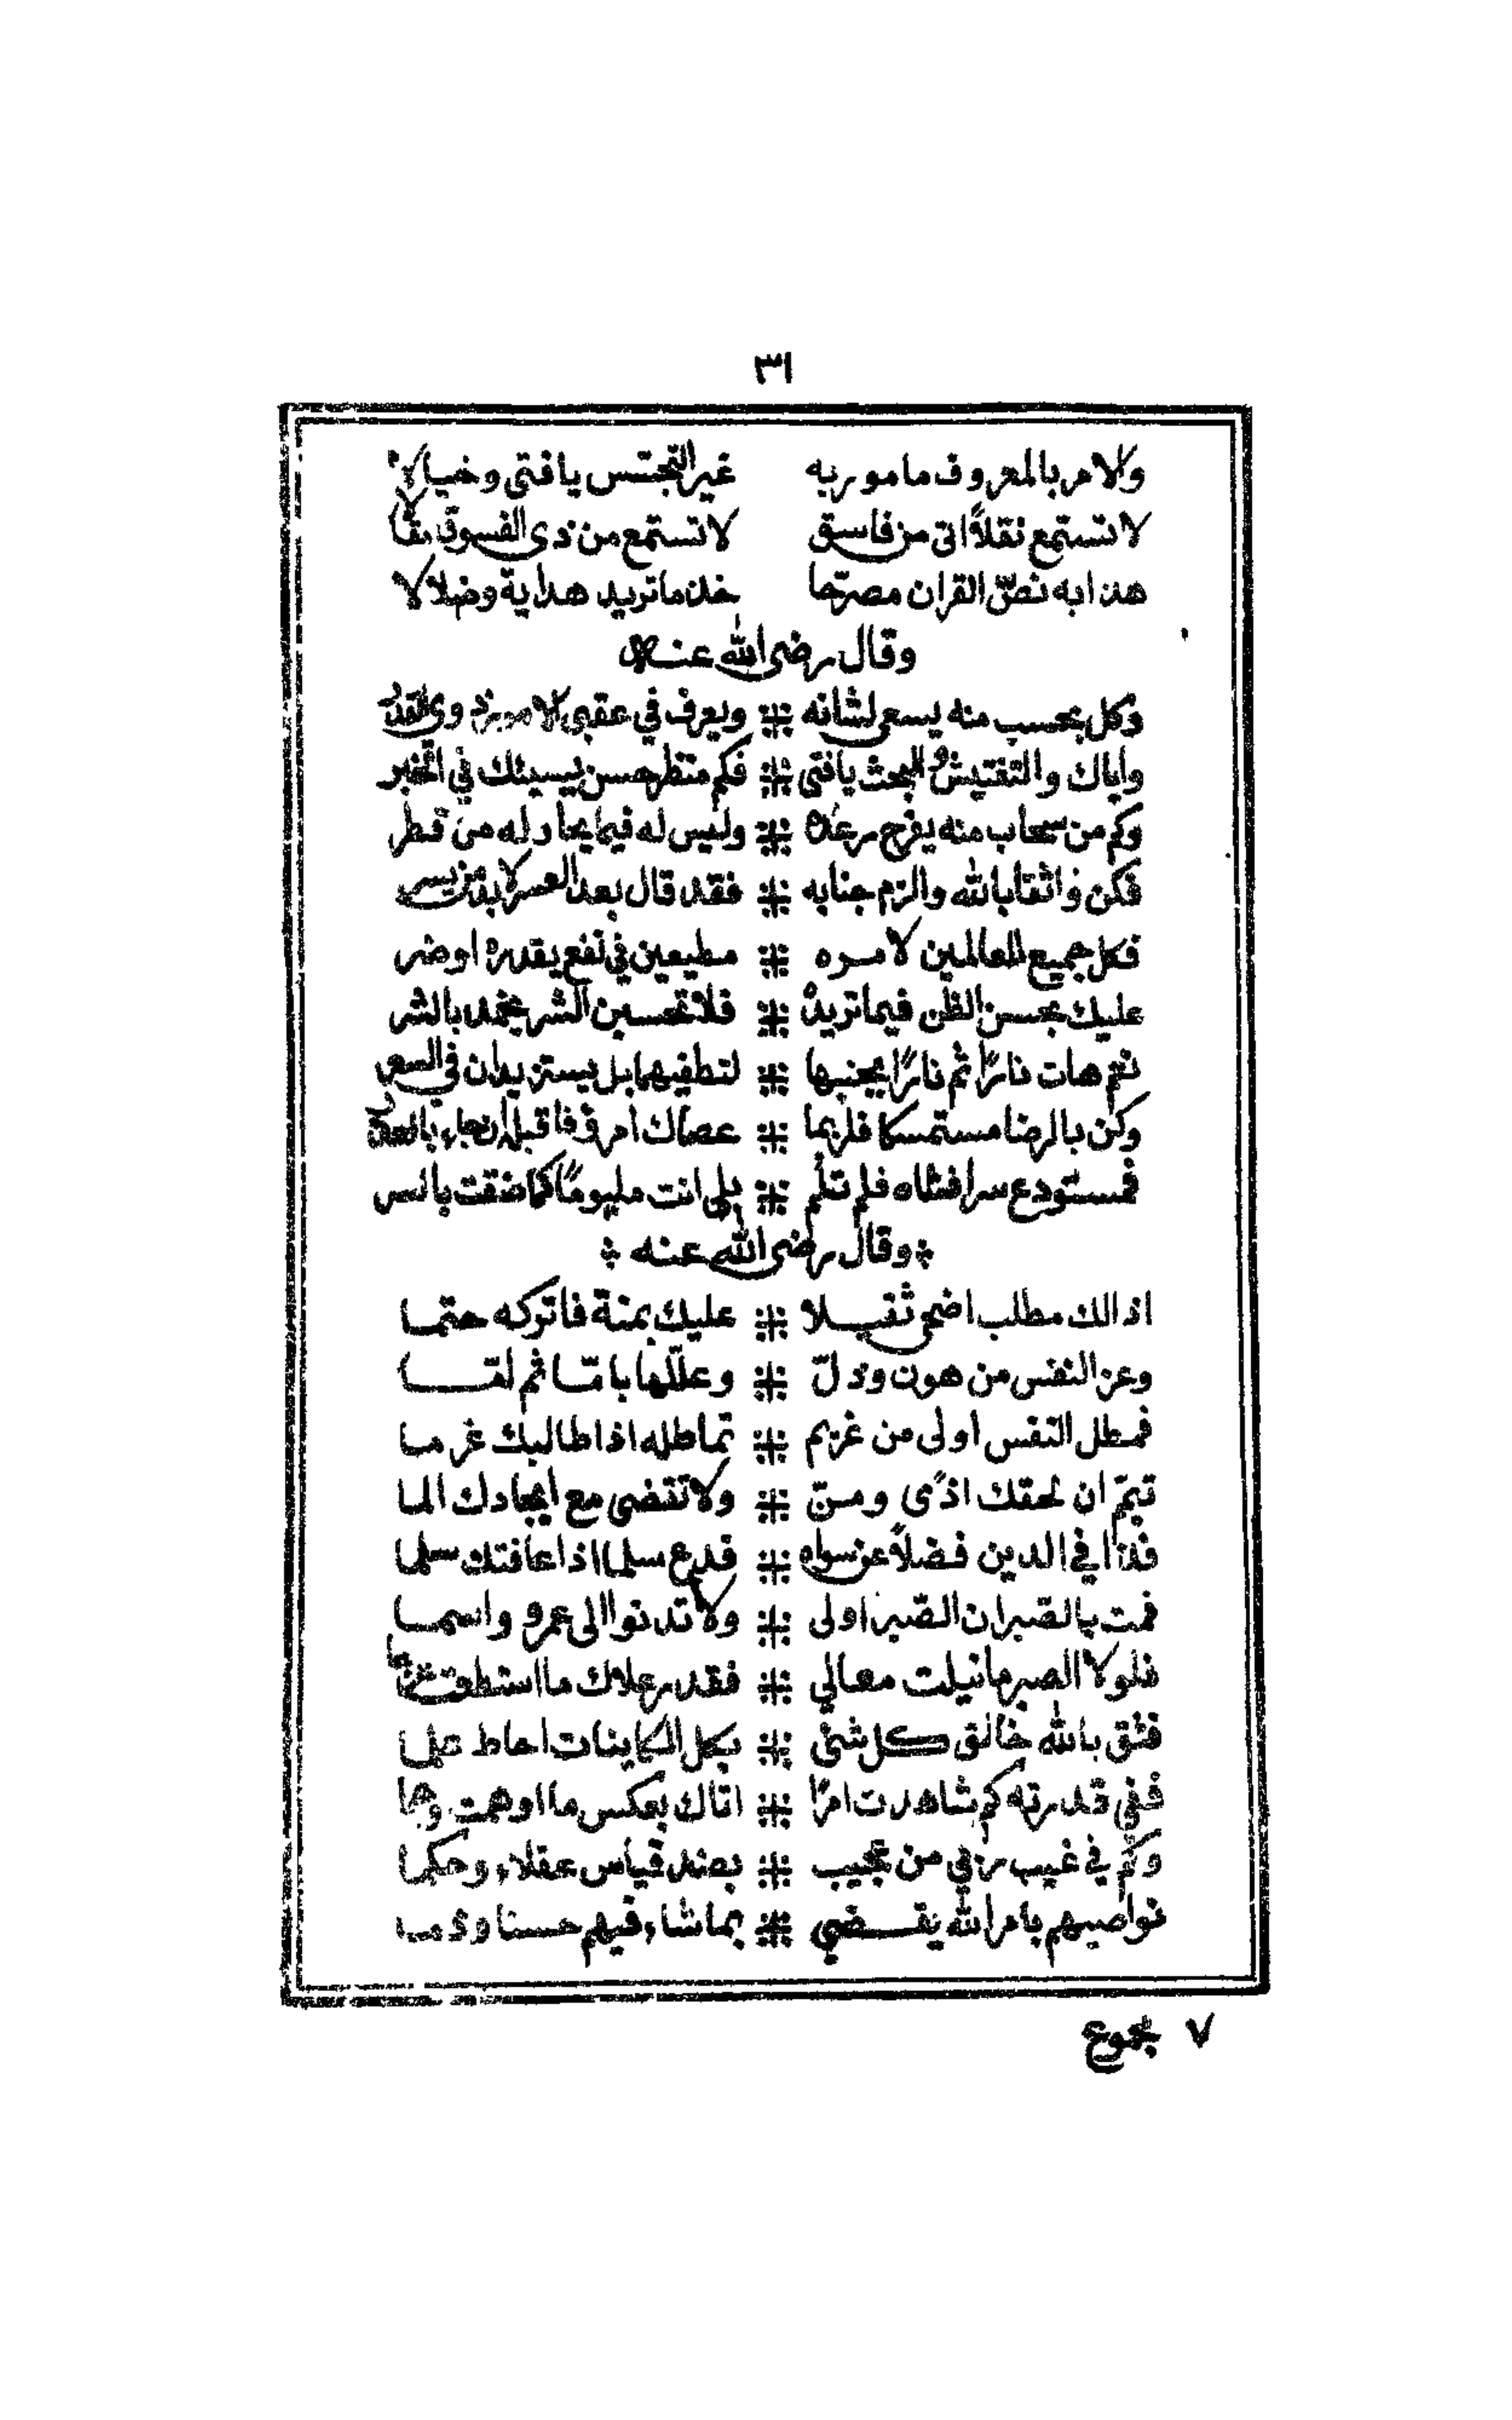 ٣١
والامر بالمعروف مامور به غير التجسّس يافتى وخيالا
لا تستمع نقلاً اتى من فاسق لا تستمع من ذى الفسوق نقالا
هذا به نصّ القران مصرّحا خذ ماتريد هداية وضلالا
وقال رضى الله عنه
وكل بحسب منه يسعى لشانه ⁜ ويعرف في عقبى الامور ذوى القدر
واياك والتفتيش والبحث يافتى ⁜ فكم منظر حسن يسيئك في الخبر
وكم من سحاب منه يفرج رعده ⁜ وليس له فيما يحاوله من قطر
فكن واثقا بالله والزم جنابه ⁜ فقد قال بعد العسر لابد من يسر
فكل جميع العالمين لامره ⁜ مطيعين في نفع يقدره اوضر
عليك بحسن الظن فيما تريده ⁜ فلا تحسبن الشر يخمد بالشر
نعم هات نارًا ثم نارًا بجنبها ⁜ لتطفيهما بل يستزيدان في السعر
وكن بالرضا مستمسكا فلربما ⁜ عصاك امرؤ فاقبل ان جاء بالعذر
فمستودع سرا فشاه فلم تلم ⁜ بلى انت مليومًا كما ضقت بالسر
وقال رضى الله عنه
اذا لك مطلب اضحى ثقيلا ⁜ عليك بمنة فاتركه حتما
وعز النفس من هون وذلّ ⁜ وعلّلها بامّا ثم لمّا
فمطل النفس اولى من غريم ⁜ تماطله اذا طالبك غرما
تيمّم ان لحقك اذًى ومنّ ⁜ ولا تقضى مع ايجادك الما
فذا في الدين فضلاً عن سواه ⁜ فدع سلما اذا عافتك سلما
فمت بالصبر ان الصّبر اولى ⁜ ولا تدنوا الى عمرو واسما
فلولا الصبر مانيلت معالي ⁜ فقدر علاك ما اسطعت عزما
فثق بالله خالق كل شئ ⁜ بكل الكاينات احاط علما
ففي قدرته كم شاهدت امرًا ⁜ اتاك بعكس ما اوهمت وهما
وكم في غيب ربي من عجيب ⁜ بضد قياس عقلاء وحكما
نواصيهم بامر الله يقضي ⁜ بماشاء فيهم حسنا وذما
٧ مجموع